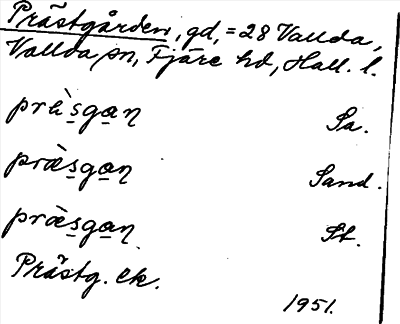 Prästgården, gd, = 28 Vallda,
Vallda sn, Fjäre hd, Hall. l.
præ̀s̱ga̱ɳ Sa.
præ̀s̱ga̱ɳ Sand.
præ̀s̱ga̱ɳ St.
Prästg. ek.
1951.